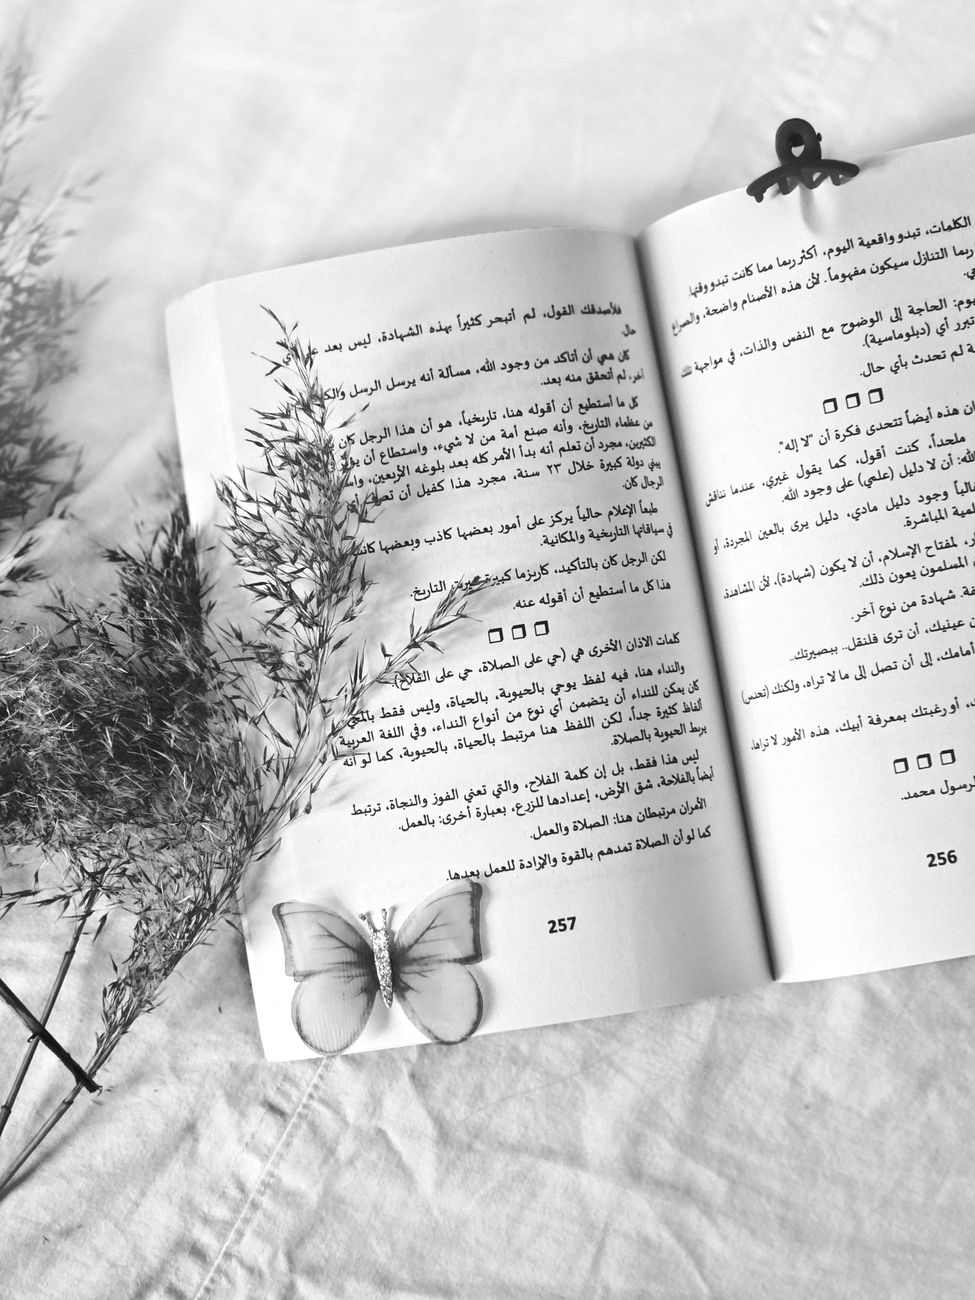 الكلمات، تبدو واقعية اليوم، أكثر ربما مما كانت تبدو وقتها.
ربما التنازل سيكون مفهوماً. لأن هذه الأصنام واضحة، والصراع
الحاجة إلى الوضوح مع النفس والذات، في مواجهة تلك
تبرر أي (دبلوماسية).
لم تحدث بأي حال.
هذه أيضاً تتحدى فكرة أن "لا إله".
ملحداً، كنت أقول، كما يقول غيري، عندما نناقش
أن لا دليل (علمي) على وجود الله.
وجود دليل مادي، دليل يرى بالعين المجردة، أو
المباشرة.
لمفتاح الإسلام، أن لا يكون (شهادة)، لأن المشاهدة،
المسلمون يعون ذلك.
شهادة من نوع آخر.
عينيك، أن ترى فلنقل.. ببصيرتك..
أمامك، إلى أن تصل إلى ما لا تراه، ولكنك (تحدس)
أو رغبتك بمعرفة أبيك، هذه الأمور لا تراها،
محمد.
256
فلأصدقك القول، لم أتبحر كثيراً بهذه الشهادة، ليس بعد
حال.
كان همي أن أتأكد من وجود الله، مسألة أنه يرسل الرسل
آخر، لم أتحقق منه بعد.
كل ما أستطيع أن أقوله هنا، تاريخياً، هو أن هذا الرجل كان
من عظماء التاريخ، وأنه صنع أمة من لا شيء، واستطاع أن
الكثيرين، مجرد أن تعلم أنه بدأ الأمر كله بعد بلوغه الأربعين،
يبني دولة كبيرة خلال ٢٣ سنة، مجرد هذا كفيل أن تعرف أي
الرجال كان.
طبعاً الإعلام حالياً يركز على أمور بعضها كاذب وبعضها
في سياقاتها التاريخية والمكانية.
لكن الرجل كان بالتأكيد، كاريزما كبيرة التاريخ.
هذا كل ما أستطيع أن أقوله عنه.
كلمات الاذان الأخرى هي (حي على الصلاة، حي على الفلاح).
والنداء هنا، فيه لفظ يوحي بالحيوية، بالحياة، وليس فقط
كان يمكن للنداء أن يتضمن أي نوع من أنواع النداء، وفي اللغة العربية
ألفاظ كثيرة جداً، لكن اللفظ هنا مرتبط بالحياة، بالحيوية، كما لو أنه
يربط الحيوية بالصلاة.
ليس هذا فقط، بل إن كلمة الفلاح، والتي تعني الفوز والنجاة، ترتبط
أيضاً بالفلاحة، شق الأرض، إعدادها للزرع، بعبارة أخرى: بالعمل.
الأمران مرتبطان هنا: الصلاة والعمل.
كما لو أن الصلاة تمدهم بالقوة والإرادة للعمل بعدها.
257